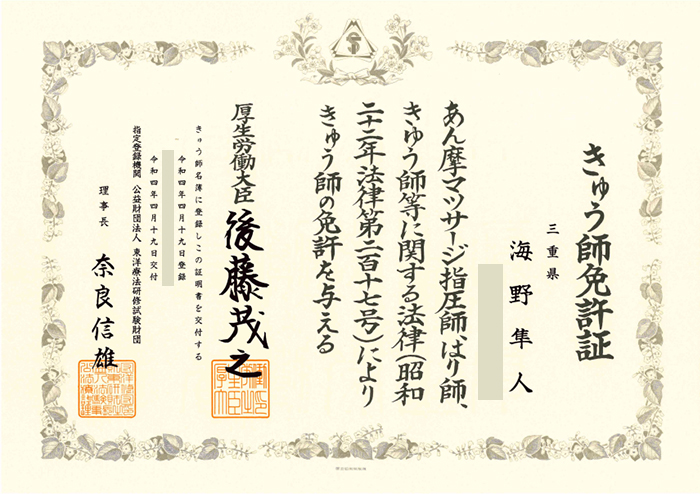 きゅう師免許証
三重県
海野隼人
あん摩マツサージ指圧師、はり師、
きゆう師等に関する法律(昭和
二十二年法律第二百十七号)により
きゅう師の免許を与える
厚生労働大臣 後藤茂之
きゅう師名簿に登録しこの証明書を交付する
令和四年四月十九日登録
令和四年四月十九日交付
指定登録機関 公益財団法人 東洋療法研修試験財団
理事長 奈良信雄